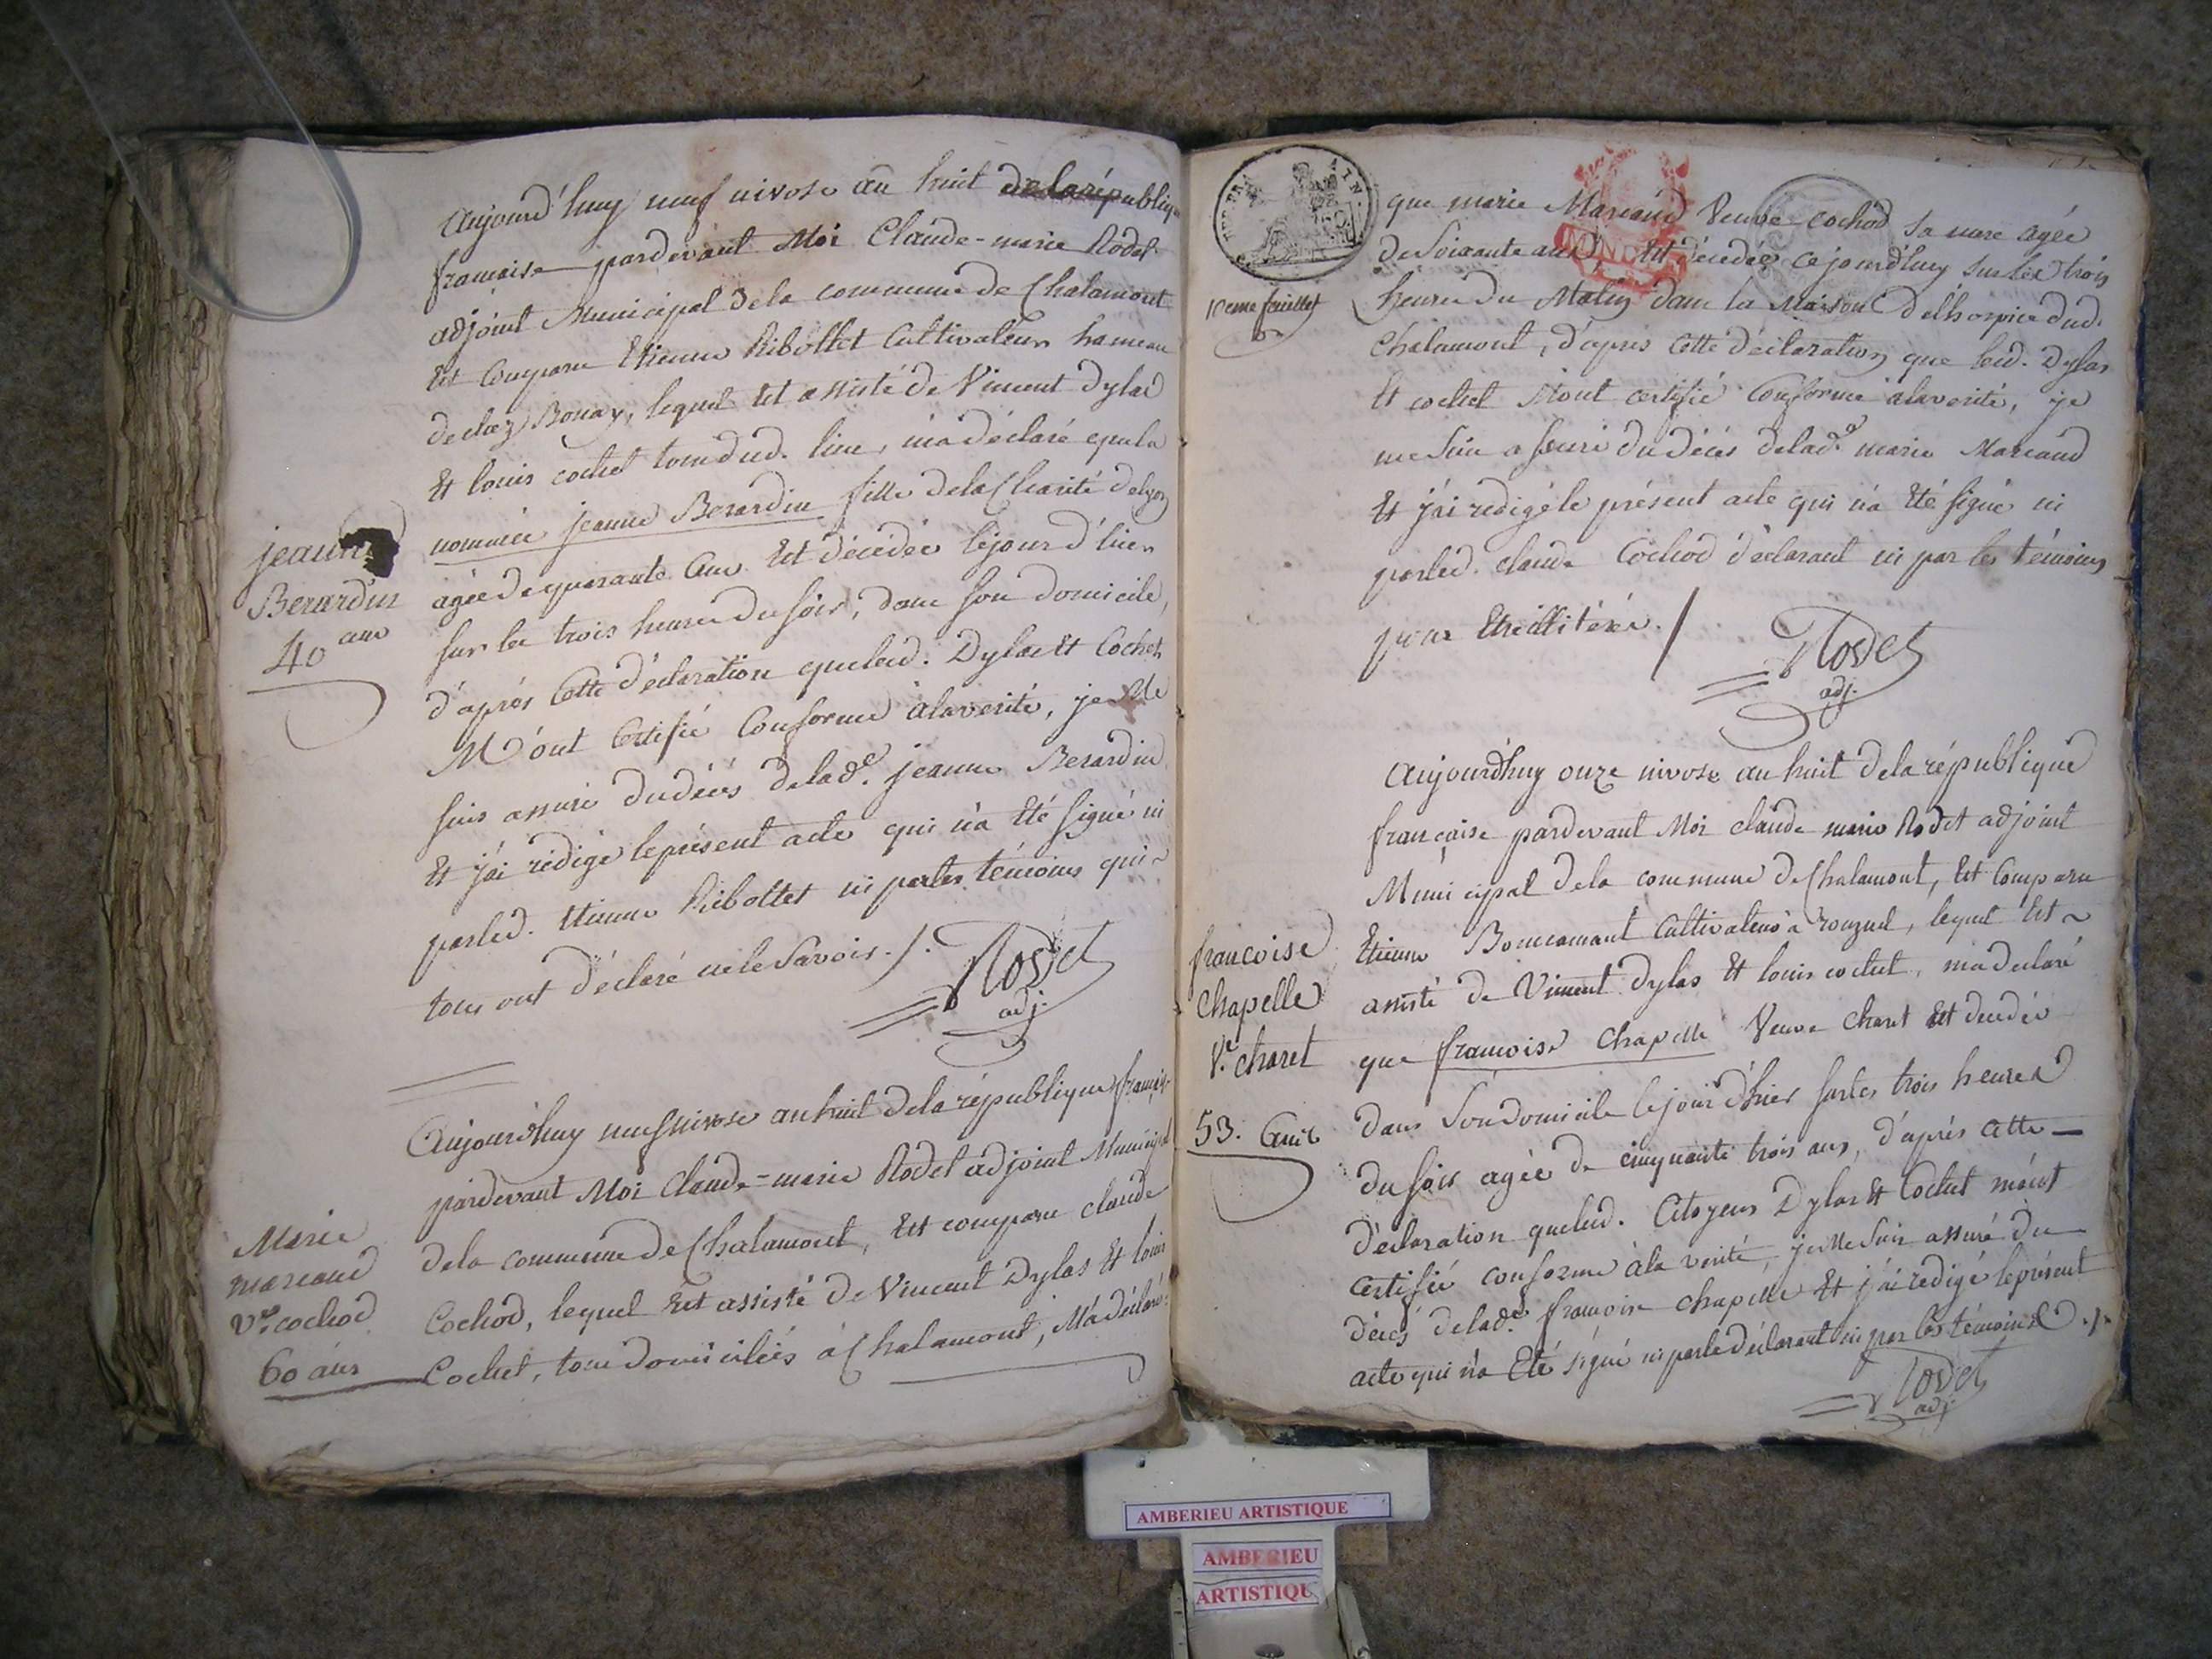 Aujourd'huy neuf nivose an huit de la républiq
francaise pardevant Moi Claude-marie Rodet
adjoint Municipal dela commune de Chalamont
Est Comparu Etienne Ribollet Cultivateur hameau
de Bonay, lequel Est assisté de Vincent Dylas
Et louis cochet tous dud. lieu, m'a déclaré que la
nommée jeanne Berardin fille dela Charité de Lyon
agée de quarante ans Est décédée le jour d'hier
sur les trois heures du soir, dans son domicile,
d'après Cette déclaration que lesd. Dylas Et Cochet
M'ont Certifié Conforme à la verité, je Me
suis assuré du décès de lad.e jeanne Berardin
Et j'ai rédigé le présent acte qui n'a Eté signé ni
par led. Etienne Ribollet ni par les témoins qui
tous ont déclaré ne le savoir ./.
Rodet
adj.
jeanne
Berardin
40 ans
Aujourd'huy neuf nivose an huit dela république française
pardevant Moi Claude-marie Rodet adjoint Municipal
dela commune de Chalamont, Est comparu claude
Cochod, lequel Est assisté de Vincent Dylas Et louis
Cochet, tous domiciliés à Chalamont, M'a déclaré
Marie
mareaud
v.e cochod
60 ans
REP. FRA. AIN.
10eme feuillet
que marie Mareaud Veuve cochod sa mere agée
de Soixante ans, Est décédée ce jourd'huy sur les trois
heures du Matin dans la Maison de l'hospice dud.
Chalamont, d'après Cette déclaration que lesd. Dylas
Et cochet M'ont certifié Conforme à la verité, je
me suis assuré du décès de lad.e marie Mareaud
Et j'ai redigé le présent acte qui n'a Eté signé ni
par led. claude Cochod déclarant ni par les témoins
pour Etre illitérés ./
Rodet
adj.
Aujourd'huy onze nivose an huit dela république
française pardevant Moi claude marie Rodet adjoint
Municipal dela commune de Chalamont, Est Comparu
Etienne Cultivateur à ronzuel, lequel Est
assisté de Vincent Dylas Et louis cochet, m'a declaré
que francoise chapelle Veuve charet Est decedée
dans Son domicile le jour d'hier sur les trois heures
du soir agée de cinquante trois ans, d'après cette
déclaration que lesd. Citoyens Dylas Et Cochet m'ont
certifié conforme à la verité, je Me suis assuré du
décès de lad.e francoise chapelle Et j'ai redigé le présent
acte qui n'a Eté signé ni par le déclarant ni par les témoins ./.
Rodet
adj.
francoise
chapelle
V.e charet
53. ans
AMBERIEU ARTISTIQUE
AMBERIEU
ARTISTIQU